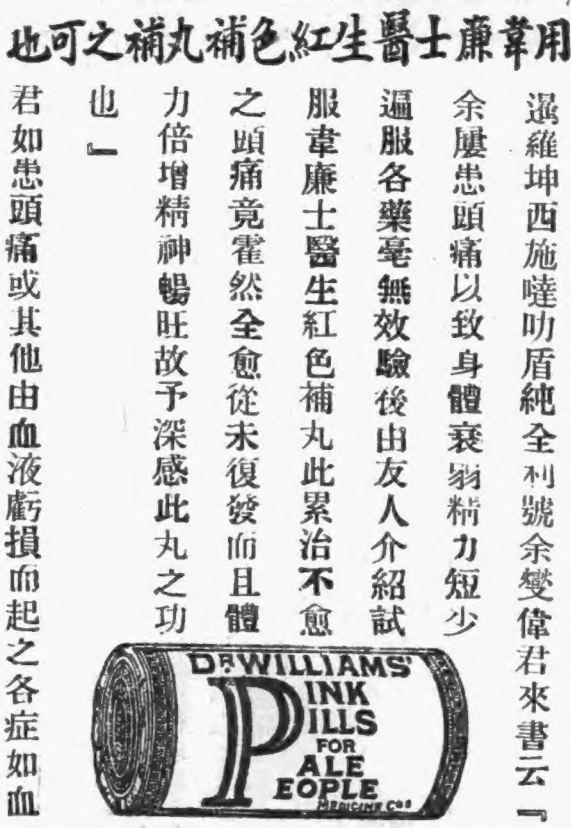 用韋廉士醫生紅色補丸補之可也
暹羅坤西施噠叻盾純全利號余燮偉君來書云『
余屢患頭痛以致身體衰弱精力短少
遍服各藥毫無效驗後由友人介紹試
服韋廉士醫生紅色補丸此累治不愈
之頭痛竟霍然全愈從未復發而且體
力倍增精神暢旺故予深感此丸之功
也』
君如患頭痛或其他由血液虧損而起之各症如血
DR. WILLIAMS'
PINK
PILLS
FOR
PALE
PEOPLE
MEDICINE Co.